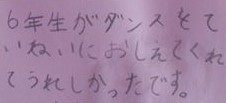 6年生がダンスをて
いねいにおしえてくれ
てうれしかったです。